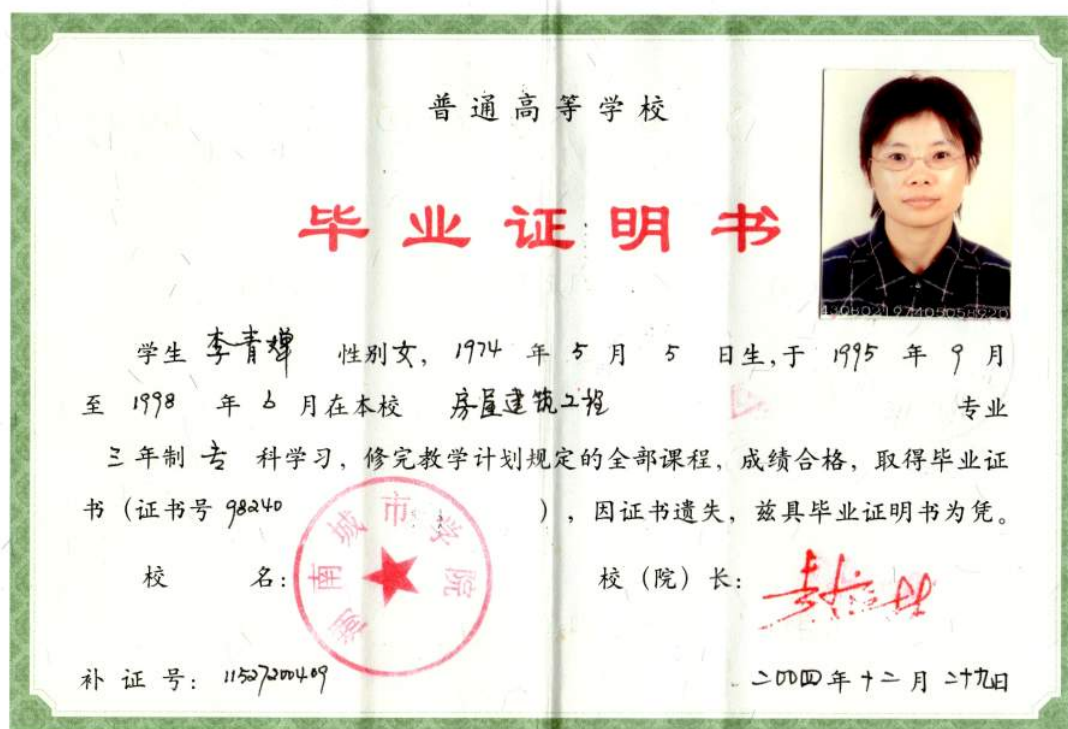 普通高等学校
毕业证明书
学生 李青婵 性别女，1974 年 5 月 5 日生，于 1995 年 9 月
至 1998 年 6 月在本校 房屋建筑工程 专业
三年制 专 科学习，修完教学计划规定的全部课程，成绩合格，取得毕业证
书（证书号 98240 ），因证书遗失，兹具毕业证明书为凭。
校 名： 校（院）长：
湖南城市学院
补证号：11527200409 二00四年十二月二十九日